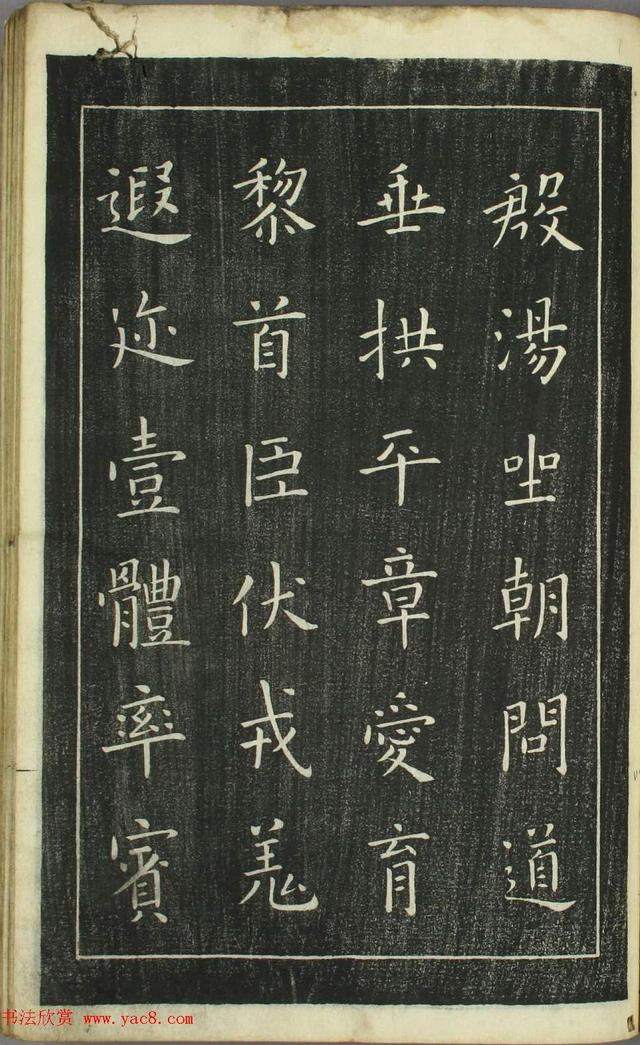 殷湯坐朝問道
垂拱平章愛育
黎首臣伏戎羌
遐迩壹體率賓
书法欣赏 www.yac8.com